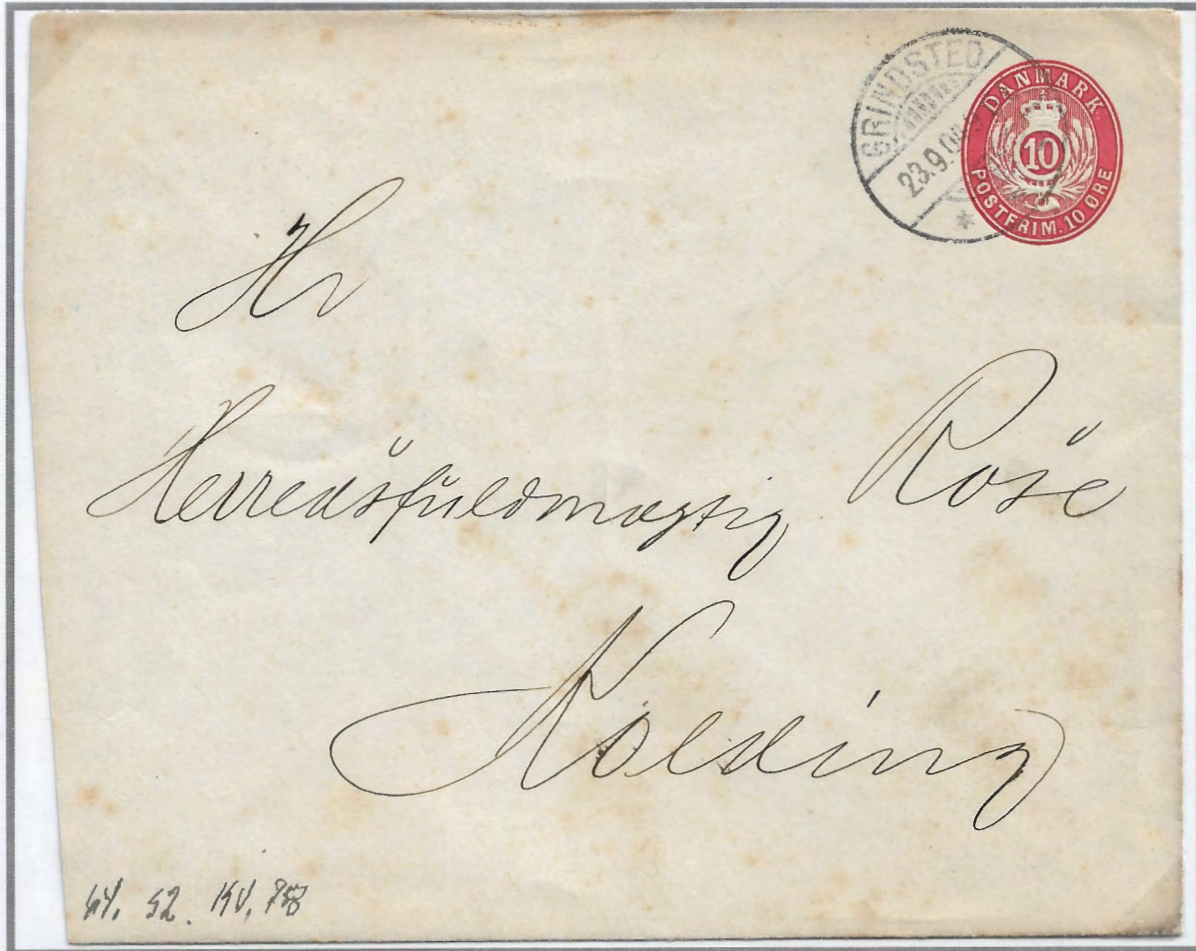 GRINDSTED
23.9.0
DANMARK.
10
POSTFRIM. 10 ØRE
Hr
Herredsfuldmægtig Rose
Kolding
52.